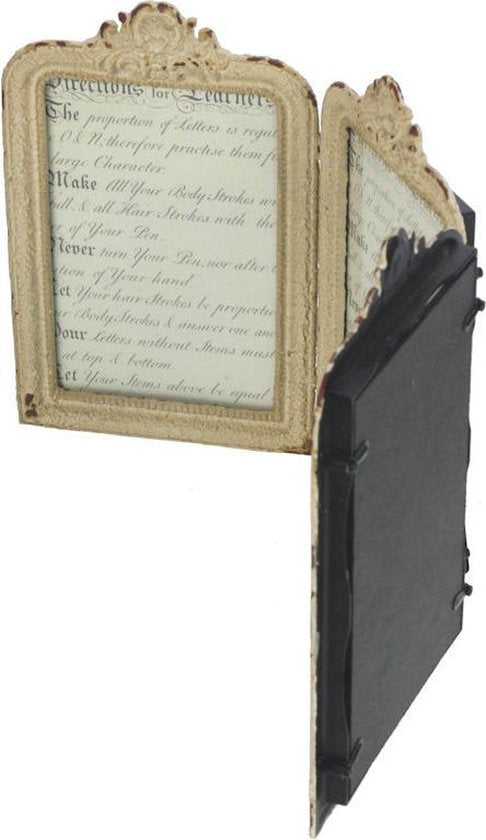 Directions for Learners
The proportion of Letters is regul
O & N, therefore practise them fi
large Character.
Make All Your Body Strokes wi
full, & all Hair Strokes with the
r of Your Pen.
Never turn Your Pen, nor alter t
tion of Your hand.
Let Your hair Strokes be proportio
ur Body Strokes & answer one ano
Your Letters without Stems must
at top & bottom.
Let Your Stems above be equal
The proportion of
Make